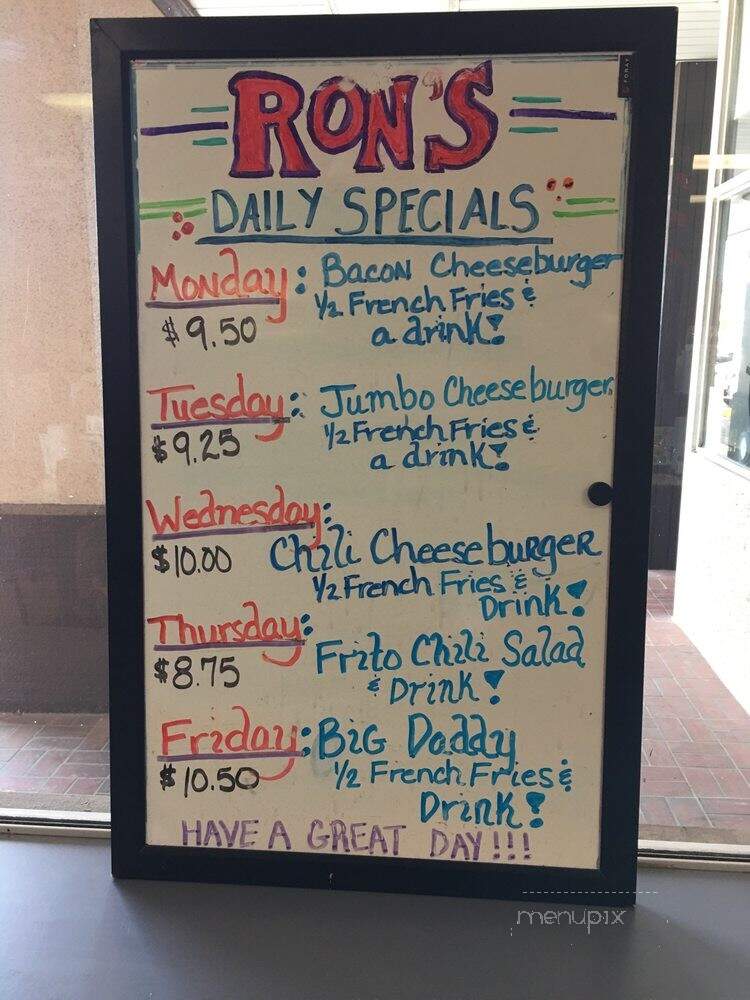 RON'S
DAILY SPECIALS
Monday: Bacon Cheeseburger
1/2 French Fries &
$9.50 a drink!
Tuesday: Jumbo Cheeseburger
1/2 French Fries &
$9.25 a drink!
Wednesday:
$10.00 Chili Cheeseburger
1/2 French Fries &
Drink!
Thursday: Frito Chili Salad
$8.75 & Drink!
Friday: Big Daddy
$10.50 1/2 French Fries &
Drink!
HAVE A GREAT DAY!!!
FORAY
menupix